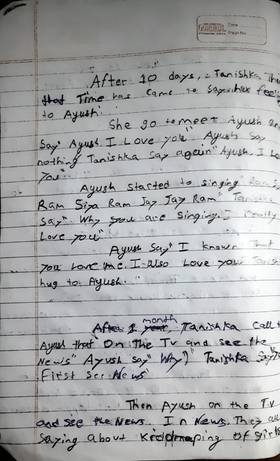 After 10 days, Tanishka
Time has came to say her
to Ayush.
She go to meet Ayush
Say "Ayush I Love you" Ayush say
nothing Tanishka say again "Ayush I
you"
Ayush started to singing
Ram Siya Ram Jay Jay Ram"
Say "Why you are Singing. I
Love you"
Ayush Say "I known
you Love me. I also Love you
hug to Ayush.
After 1 month Tanishka call
Ayush that On the Tv and see the
News" Ayush say "Why?" Tanishka
First see News
Then Ayush on the T.V
and see the News. In News They
Saying about Kiddnaping of girls